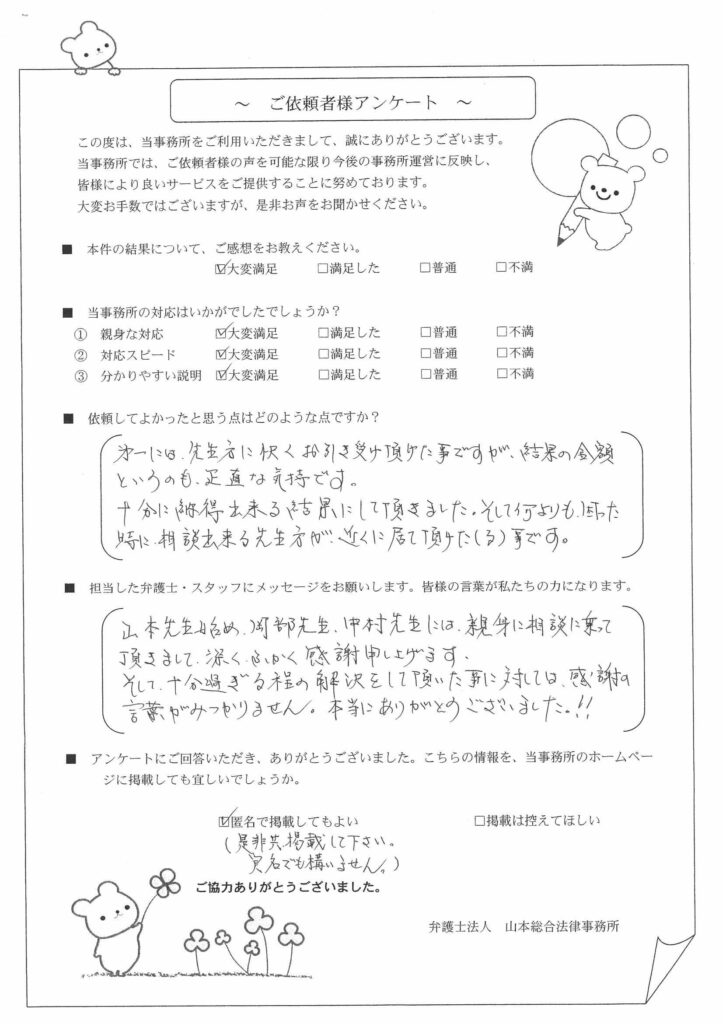 ～ ご依頼者様アンケート ～
この度は、当事務所をご利用いただきまして、誠にありがとうございます。
当事務所では、ご依頼者様の声を可能な限り今後の事務所運営に反映し、
皆様により良いサービスをご提供することに努めております。
大変お手数ではございますが、是非お声をお聞かせください。
■ 本件の結果について、ご感想をお教えください。
☑大変満足 □満足した □普通 □不満
■ 当事務所の対応はいかがでしたでしょうか？
① 親身な対応 ☑大変満足 □満足した □普通 □不満
② 対応スピード ☑大変満足 □満足した □普通 □不満
③ 分かりやすい説明 ☑大変満足 □満足した □普通 □不満
■ 依頼してよかったと思う点はどのような点ですか？
第一には、先生方に快くお引き受け頂けた事ですが、結果の金額
というのも、正直な気持です。
十分に納得出来る結果にして頂きました。そして何よりも、困った
時に、相談出来る先生方が、近くに居て頂けた(る)事です。
■ 担当した弁護士・スタッフにメッセージをお願いします。皆様の言葉が私たちの力になります。
山本先生始め、岡部先生、中村先生には、親身に相談に乗って
頂きまして、深く、ふかく感謝申し上げます。
そして、十分過ぎる程の解決をして頂いた事に対しては、感謝の
言葉がみつかりません。本当にありがとうございました。!!
■ アンケートにご回答いただき、ありがとうございました。こちらの情報を、当事務所のホームペー
ジに掲載しても宜しいでしょうか。
☑匿名で掲載してもよい □掲載は控えてほしい
(是非共掲載して下さい。
実名でも構いません。)
ご協力ありがとうございました。
弁護士法人 山本総合法律事務所